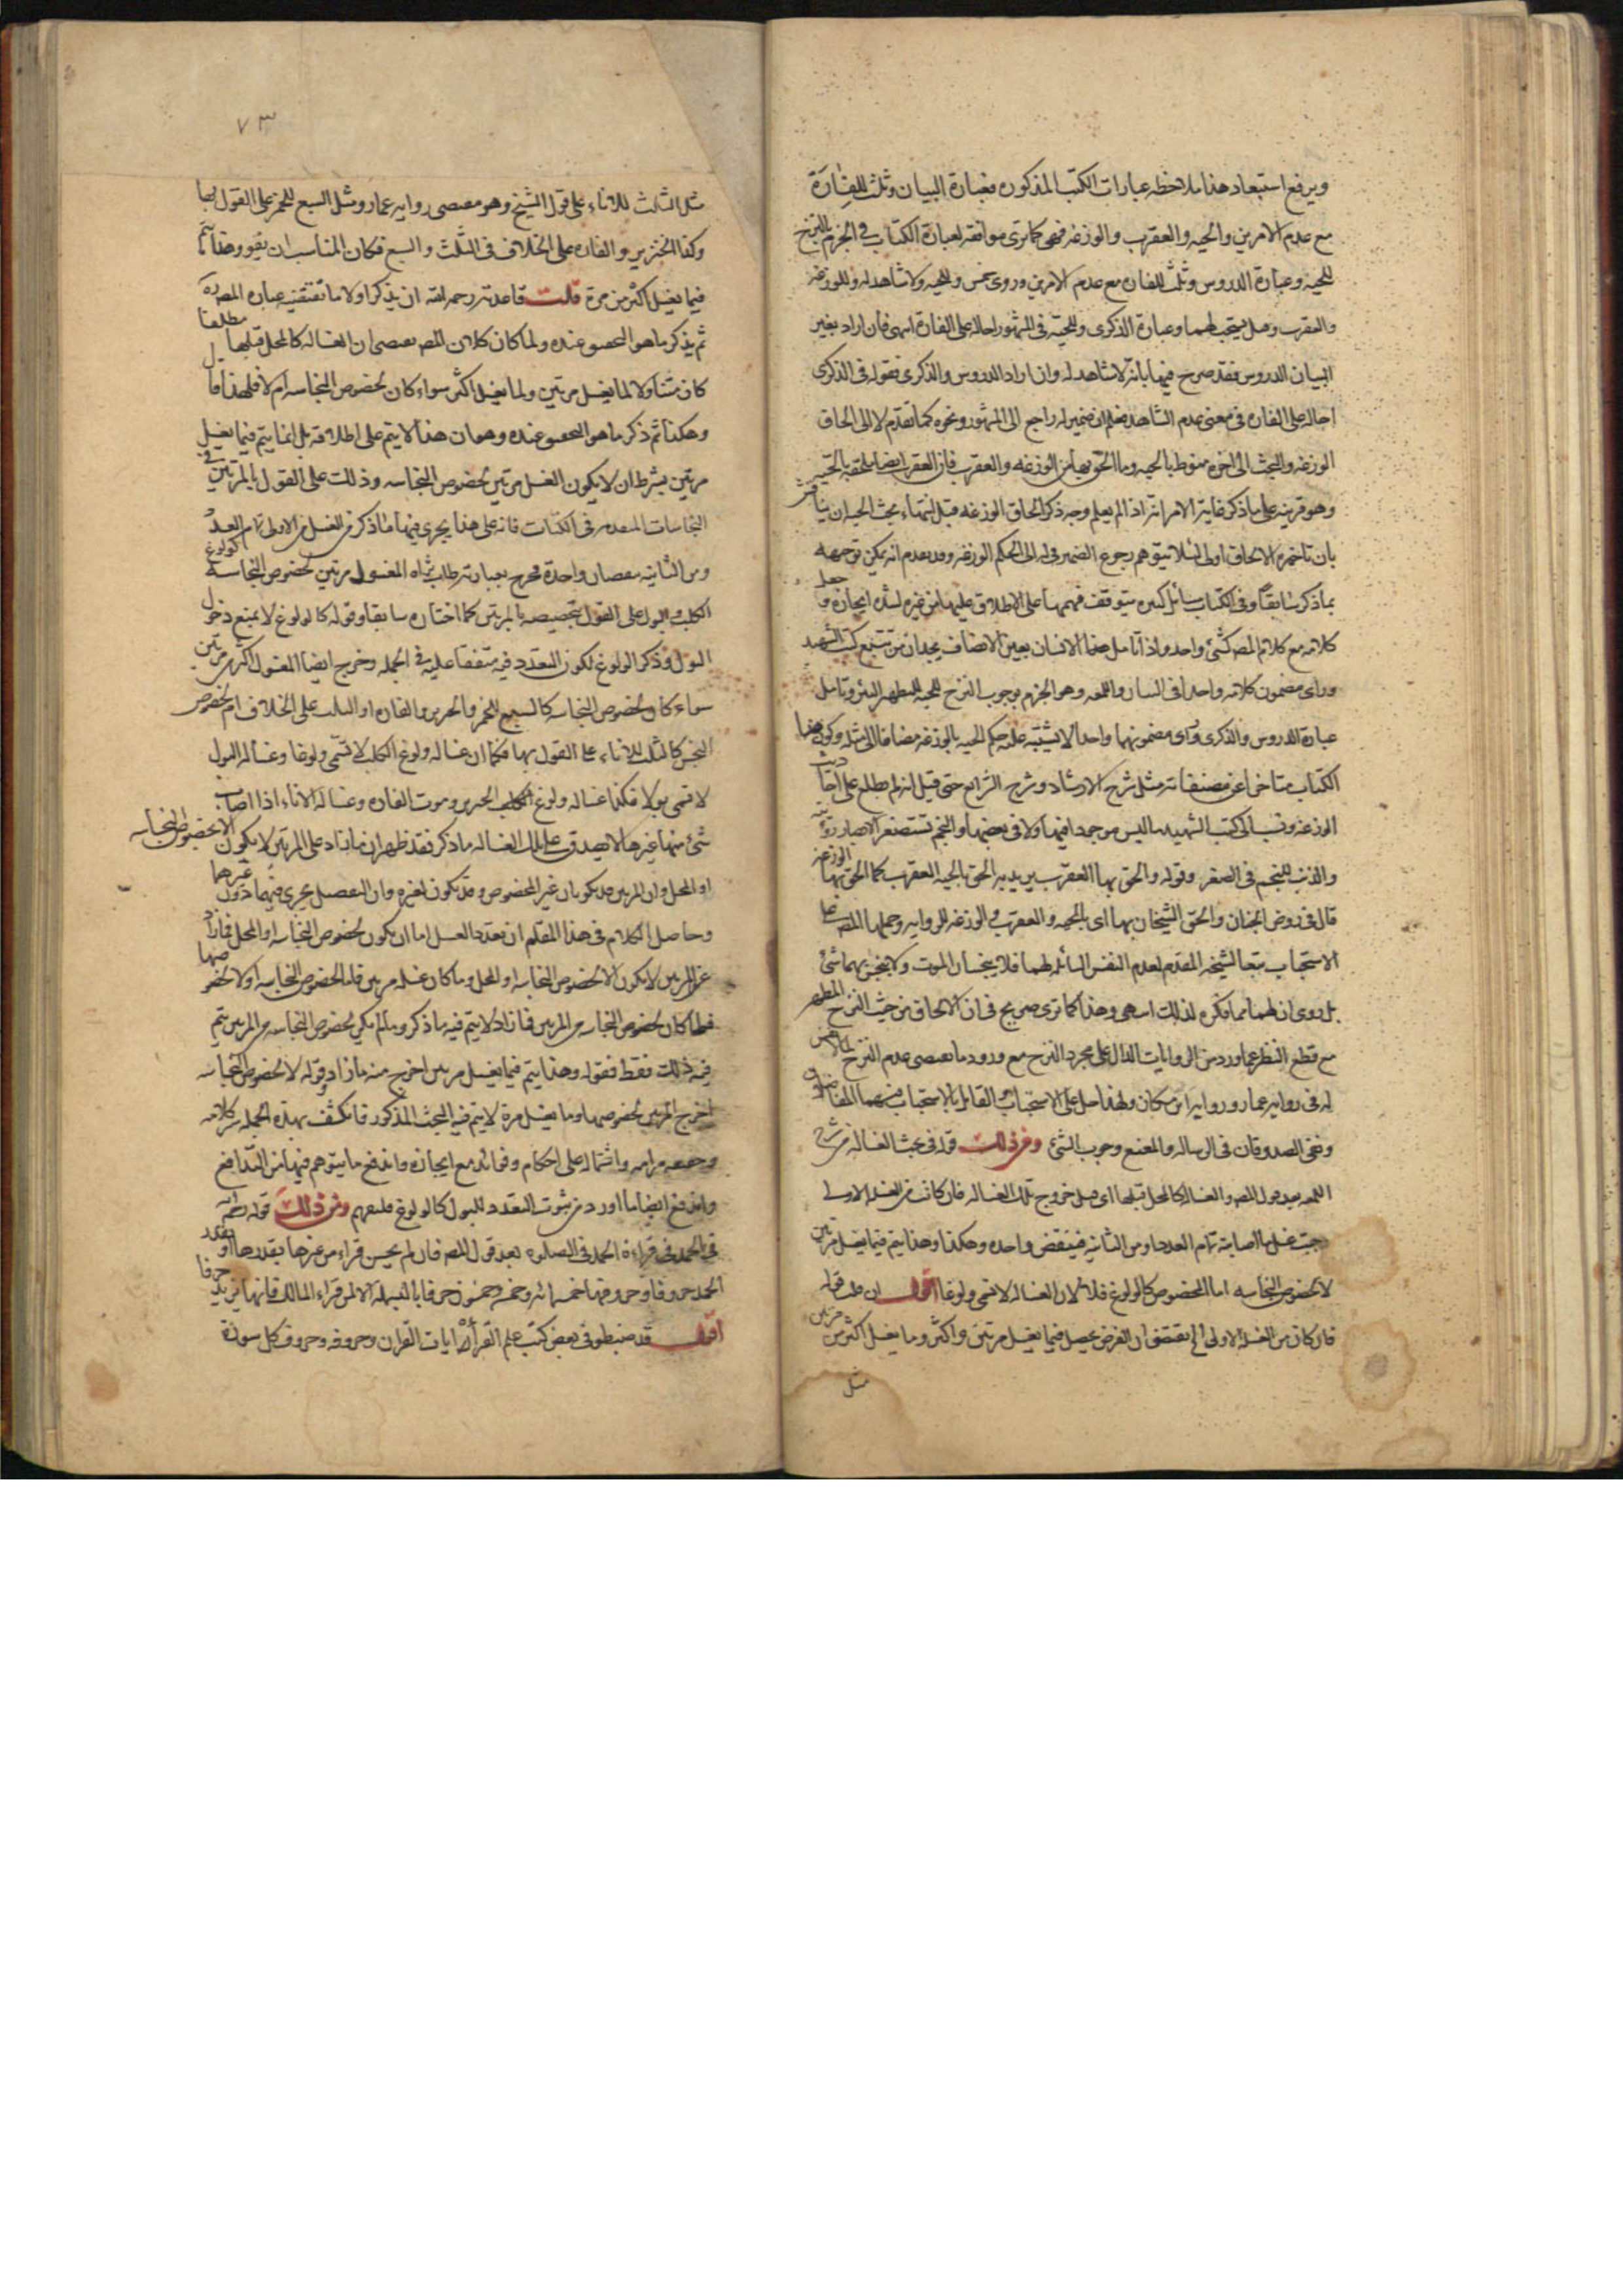 ويرفع استبعاد هذا ملاحظه عبارات الكتب المذكوره فعبارة البيان وثلث للفارة
مع عدم الامرين والحيه والعقرب والوزغه فهى كما ترى موافقه لعبارة الكتاب فى الجزم بالنزح
للحيه وعبارة الدروس وثلث للفاره مع عدم الامرين وروى خمس وللحيه ولا شاهد له وللوزغه
والعقرب وهل يستحب لهما وعبارة الذكرى وللحيه فى المشهور احاله على الفارة انتهى فان اراد بغير
البيان الدروس فقد صرح فيها بانه لا شاهد له وان اراد الدروس والذكرى فقوله فى الذكرى
احاله على الفاره فى معنى عدم الشاهد فعلم ان ضمير له راجع الى المشهور ونحوه كما تقدم لا الى الحاق
الوزغه والبحث الى اخره منوط بالحيه وما الحق بها من الوزغه والعقرب فان العقرب ايضا ملحقه بالحيه
وهو قرينه على ما ذكر غاية الامر انه اذا لم يعلم وجه ذكر الحاق الوزغه قبل انتهاء بحث الحيه ان يناقش
بان تاخيره الالحاق اولى لئلا يتوهم رجوع الضمير فى له الى الحكم الوزغه وقد تقدم انه يمكن توجيهه
بما ذكر سابقا وفى الكتاب مسائل كثيره يتوقف فهمها على الاطلاق عليها من غيره لشدة ايجازه وجعل
كلامه مع كلام المصه كشئ واحد واذا تامل هذا الانسان بعين الانصاف يجد ان من تتبع كتب الشهيد
وراى مضمون كلامه واحدا فى البيان واللمعه وهو الجزم بوجوب النزح للحيه المطهر للبئر وتامل
عبارة الدروس والذكرى وراى مضمونهما واحدا لا يشتبه عليه حكم الحيه بالوزغه مضافا الى مثله وكون هذا
الكتاب متاخرا عن مصنفاته مثل شرح الارشاد وشرح الشرائع حتى قيل انه لم يطلع على احاديث
الوزغه ونسب الى كتب الشهيد ما ليس موجودا فيها ولا فى بعضها والنجم تستصغر الابصار رؤيته
والذنب للنجم فى الصغر وقوله والحق بها العقرب يريد به الحق بالحيه العقرب كما الحق بها الوزغه
قال فى روض الجنان والحق الشيخان بهما اى بالحيه والعقرب فى الوزغه للروايه وحملها المصه على
الاستحباب تبعا لشيخه المقدم لعدم النفس السائله لهما فلا ينجسان بالموت ولا ينجس بهما شئ
بل روى ان لهما سما فكره لذلك انتهى وهذا كما ترى صريح فى ان الالحاق من حيث النزح المطهر
مع قطع النظر عما ورد من الروايات الدال على مجرد النزح مع ورود ما يقتضى عدم النزح لما لا نفس
له فى روايه عمار وروايه ابن مسكان ولهذا حمل على الاستحباب والقائل بالاستحباب منهما الفاضلان
ونفى الصدوقان فى الرساله والمقنع وجوب الشئ ومن ذلك قوله فى بحث الغساله من شرح
اللمعه بعد قول المصه والغساله كالمحل قبلها اى قبل خروج تلك الغساله فان كانت من الغسله الاولى
وجب غسل ما اصابته تمام العدد او من الثانيه فينقض واحده وهكذا وهذا يتم فيما يغسل مرتين
لا لخصوص النجاسه اما المخصوص كالولوغ فلا لان الغساله لا تسمى ولوغا اقول ان قلت قوله
فان كان من الغسله الاولى الخ يقتضى ان الغرض يحصل فيما يغسل مرتين واكثر وما يغسل اكثر من مرتين
مثل
٧٣
مثل الثلث للاناء على قول الشيخ وهو مقتضى روايه عمار ومثل السبع للخمر على القول بها
وكذا الخنزير والفاره على الخلاف فى الثلث والسبع فكان المناسب ان يقول وهذا يتم
فيما يغسل اكثر من مرة قلت قاعدته رحمه الله ان يذكر اولا ما تقتضيه عبارة المصه ره
ثم يذكر ما هو المحقق عنده ولما كان كلام المصه يقتضى ان الغساله كالمحل قبلها مطلقا
كان متناولا لما يغسل مرتين ولما يغسل اكثر سواء كان لخصوص النجاسه ام لا فلهذا قال
وهكذا ثم ذكر ما هو المحقق عنده وهو ان هذا لا يتم على اطلاقه بل انما يتم فيما يغسل
مرتين بشرط ان لا يكون الغسل مرتين لخصوص النجاسه وذلك على القول بالمرتين فى
النجاسات المتقدمه فى الكتاب فانه على هذا يجرى فيها ما ذكر فى الغسل من الاولى تمام العدد
ومن الثانيه بنقصان واحدة فخرج بعبارته طاب ثراه المغسول مرتين لخصوص النجاسه كولوغ
الكلب والبول على القول بتخصيصه بالمرتين كما اختاره سابقا وقوله كالولوغ لا يمنع دخول
البول وذكر الولوغ لكون التعدد فيه متفقا عليه فى الجمله وخرج ايضا المغسول اكثر من مرتين
سواء كان لخصوص النجاسه كالسبع للخمر والخنزير والفاره او الثلث على الخلاف ام لخصوص
النجس كالثلث للاناء على القول بها فكما ان غساله ولوغ الكلب لا تسمى ولوغا وغسالة البول
لا تسمى بولا فكذا غساله ولوغ الكلب والخنزير وموت الفاره وغسالة الاناء اذا اصاب
شئ منها غيرها لا يصدق على تلك الغساله ما ذكر فقد ظهر ان ما زاد على المرتين لا يكون الا لخصوص النجاسه
او المحل وان المرتين قد يكونان غير المخصوص وقد يكون لغيره وان التفصيل يجرى فيهما دون غيرهما
وحاصل الكلام فى هذا المقام ان تعدد الغسل اما ان يكون لخصوص النجاسه او المحل فما زاد
عن المرتين لا يكون الا لخصوص النجاسه او المحل وما كان غسله مرتين فاما لخصوص النجاسه او لا لخصوصها
فما كان لخصوص النجاسه من المرتين فما زاد لا يتم فيه ما ذكر وما لم يكن لخصوص النجاسه من المرتين يتم
فيه ذلك فقط فقوله وهذا يتم فيما يغسل مرتين اخرج منه ما زاد وقوله لا لخصوص النجاسه
اخرج المرتين لخصوصها وما يغسل مرة لا يتم فيه البحث المذكور فانكشف بهذه الجمله سر كلامه
وحقيقه مرامه واشتماله على احكام وفوائد مع ايجازه واندفع ما يتوهم فيها من التدافع
واندفع ايضا ما اورد من ثبوت التعدد للبول كالولوغ فليفهم ومن ذلك قوله رحمه
فى الحمد فى قراءة الحمد فى الصلوه بعد قول المصه فان لم يحسن قراء من غيرها بقدرها او بقدر
الحمد حروفا وحروفها مائه وخمسه وخمسون حرفا بالبسمله الا لمن قراء المالك فانها تزيد حرفا
اقول قد ضبطو فى بعض كتب علم القرأة ايات القران وحروفه وحروف كل سورة